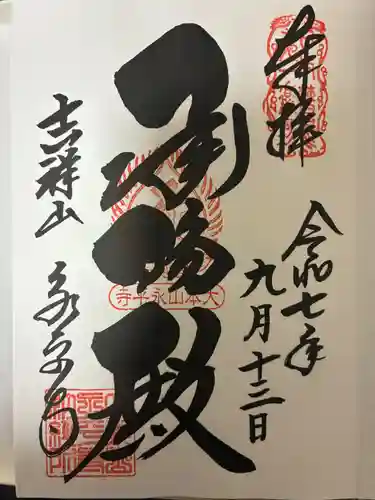 奉拝
令和七年
九月十三日
承陽殿
大本山永平寺
吉祥山
永平寺